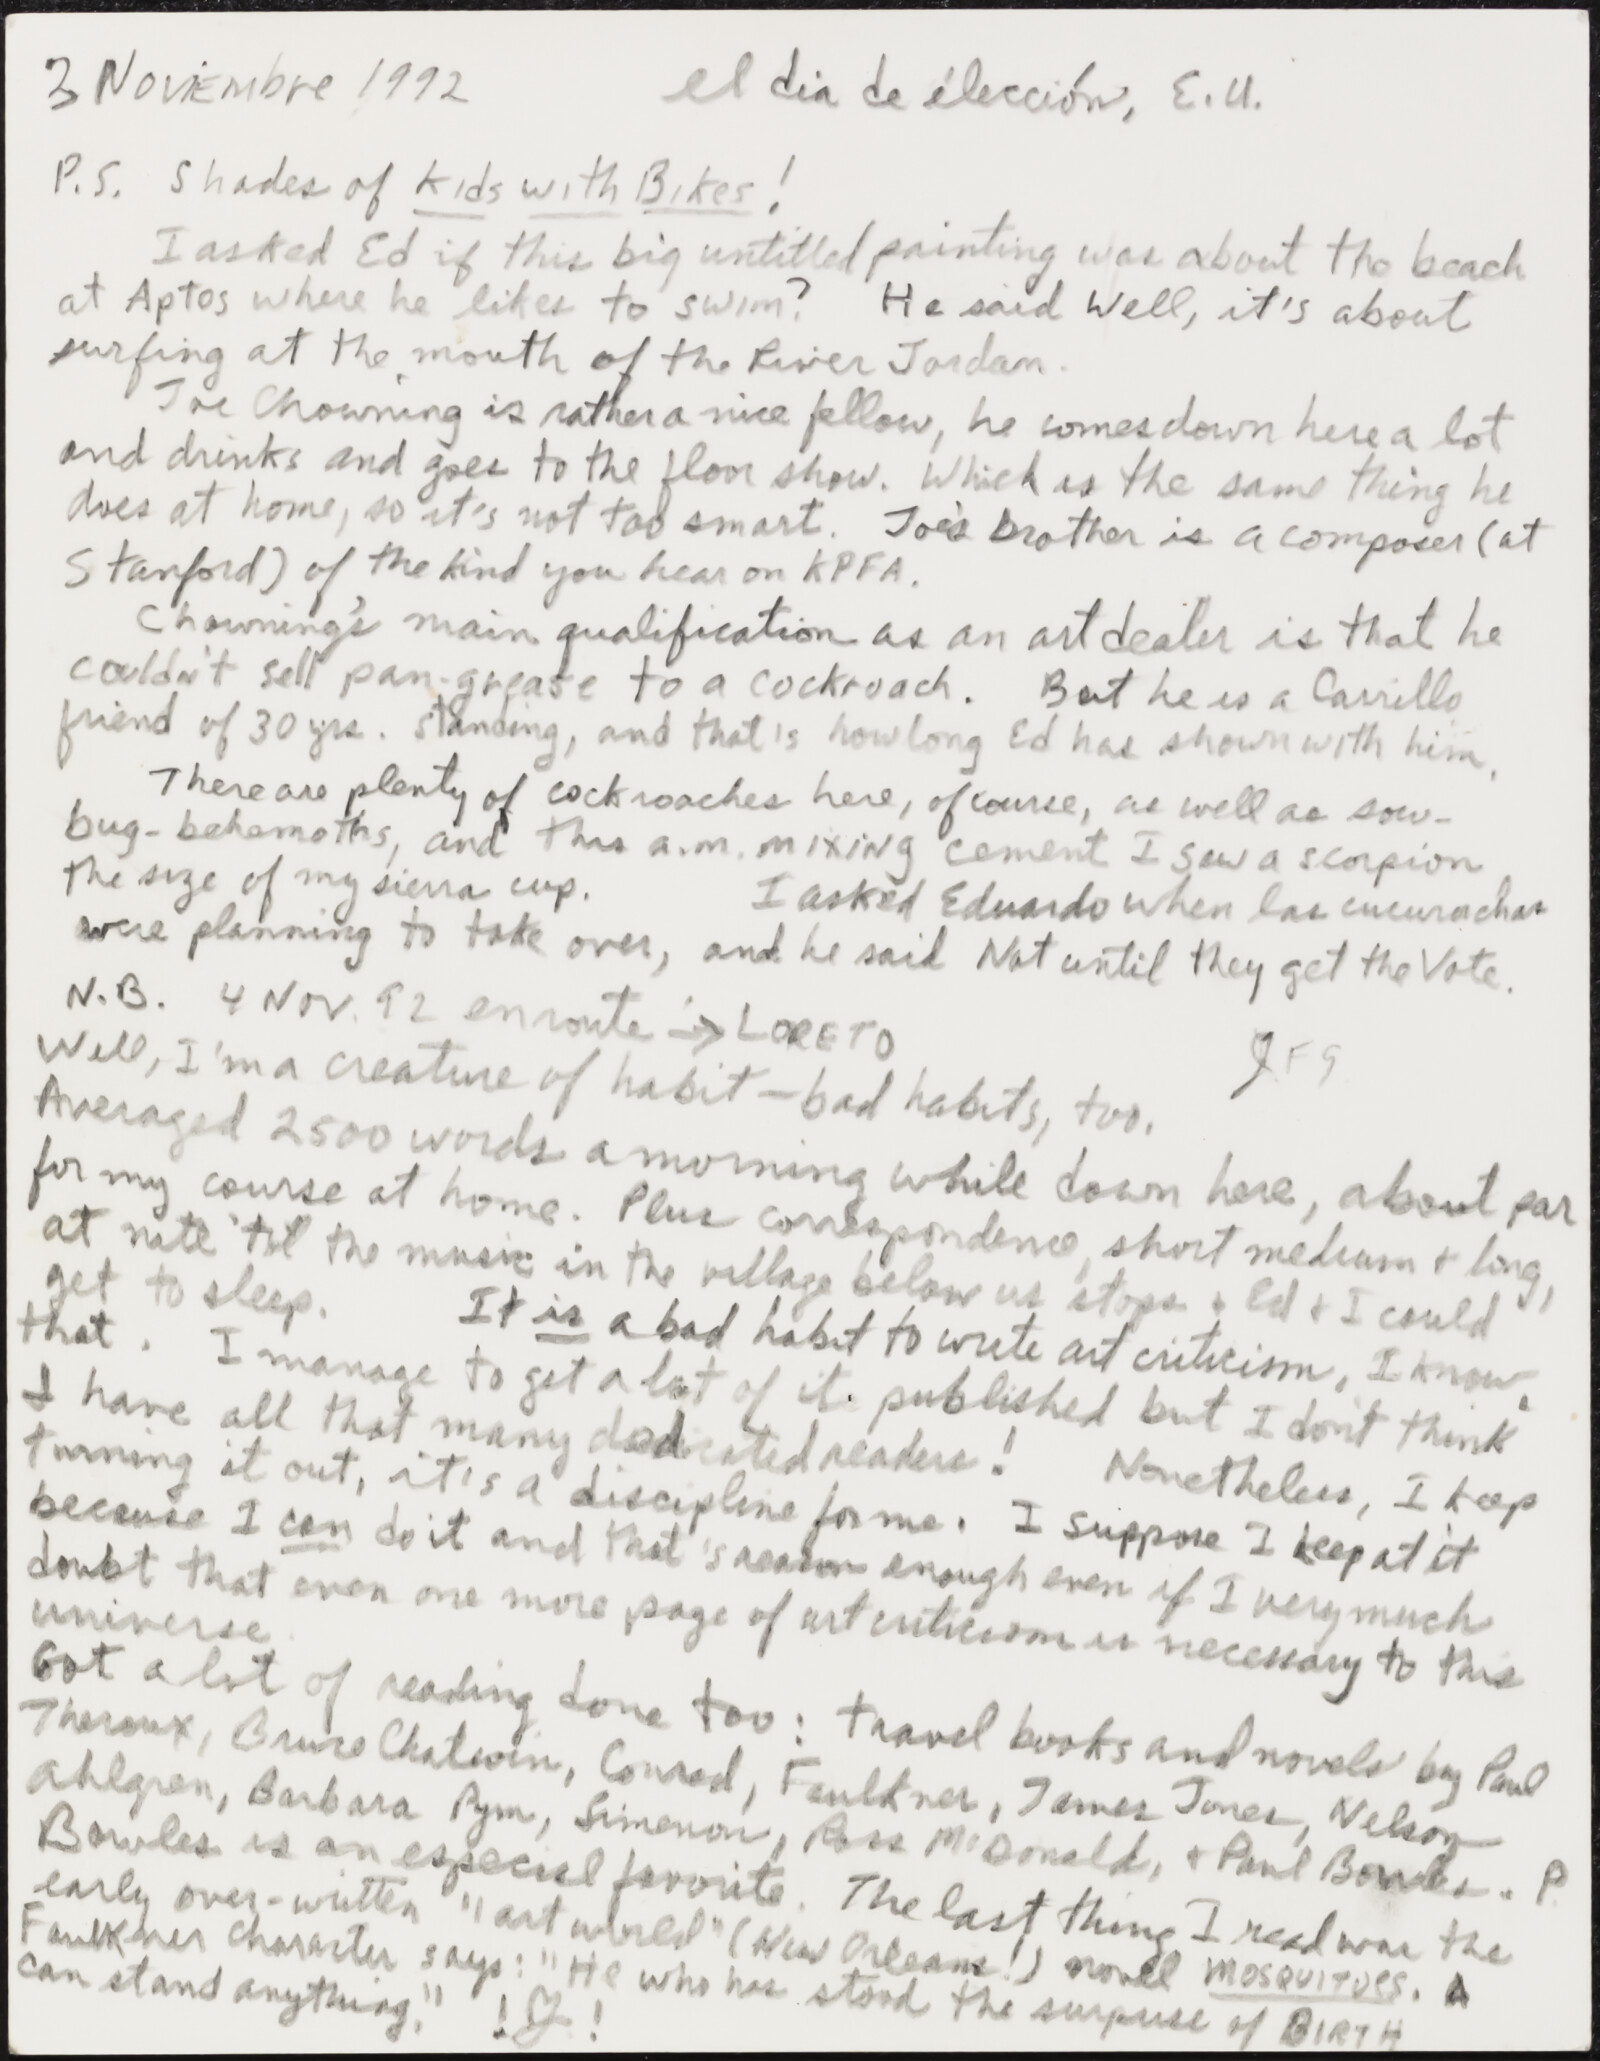 3 Noviembre 1992 el dia de élección, E.U.
P.S. Shades of Kids with Bikes!
I asked Ed if this big untitled painting was about the beach
at Aptos where he likes to swim? He said Well, it's about
surfing at the mouth of the River Jordan.
Joe Chowning is rather a nice fellow, he comes down here a lot
and drinks and goes to the floor show. Which is the same thing he
does at home, so it's not too smart. Joe's brother is a composer (at
Stanford) of the kind you hear on KPFA.
Chowning's main qualification as an art dealer is that he
couldn't sell pan-grease to a cockroach. But he is a Carrillo
friend of 30 yrs. standing, and that's how long Ed has shown with him.
There are plenty of cockroaches here, of course, as well as sow-
bug-behemoths, and this a.m. mixing cement I saw a scorpion
the size of my sierra cup. I asked Eduardo when las cucurachas
were planning to take over, and he said Not until they get the Vote.
N.B. 4 Nov. 92 enroute → LORETO
JFG
Well, I'm a creature of habit – bad habits, too.
Averaged 2500 words a morning while down here, about par
for my course at home. Plus correspondence, short medium + long,
at nite 'til the music in the village below us stops + Ed + I could
get to sleep. It is a bad habit to write art criticism, I know
that. I manage to get a lot of it published but I don't think
I have all that many dedicated readers! Nonetheless, I keep
turning it out, it's a discipline for me. I suppose I keep at it
because I can do it and that's reason enough even if I very much
doubt that even one more page of art criticism is necessary to this
universe.
Got a lot of reading done too: travel books and novels by Paul
Theroux, Bruce Chatwin, Conrad, Faulkner, James Jones, Nelson
Ahlgren, Barbara Pym, Simenon, Ross McDonald, + Paul Bowles. P.
Bowles is an especial favorite. The last thing I read was the
early over-written "art world" (New Orleans!) novel MOSQUITOES. A
Faulkner character says: "He who has stood the surprise of BIRTH
can stand anything." ! !